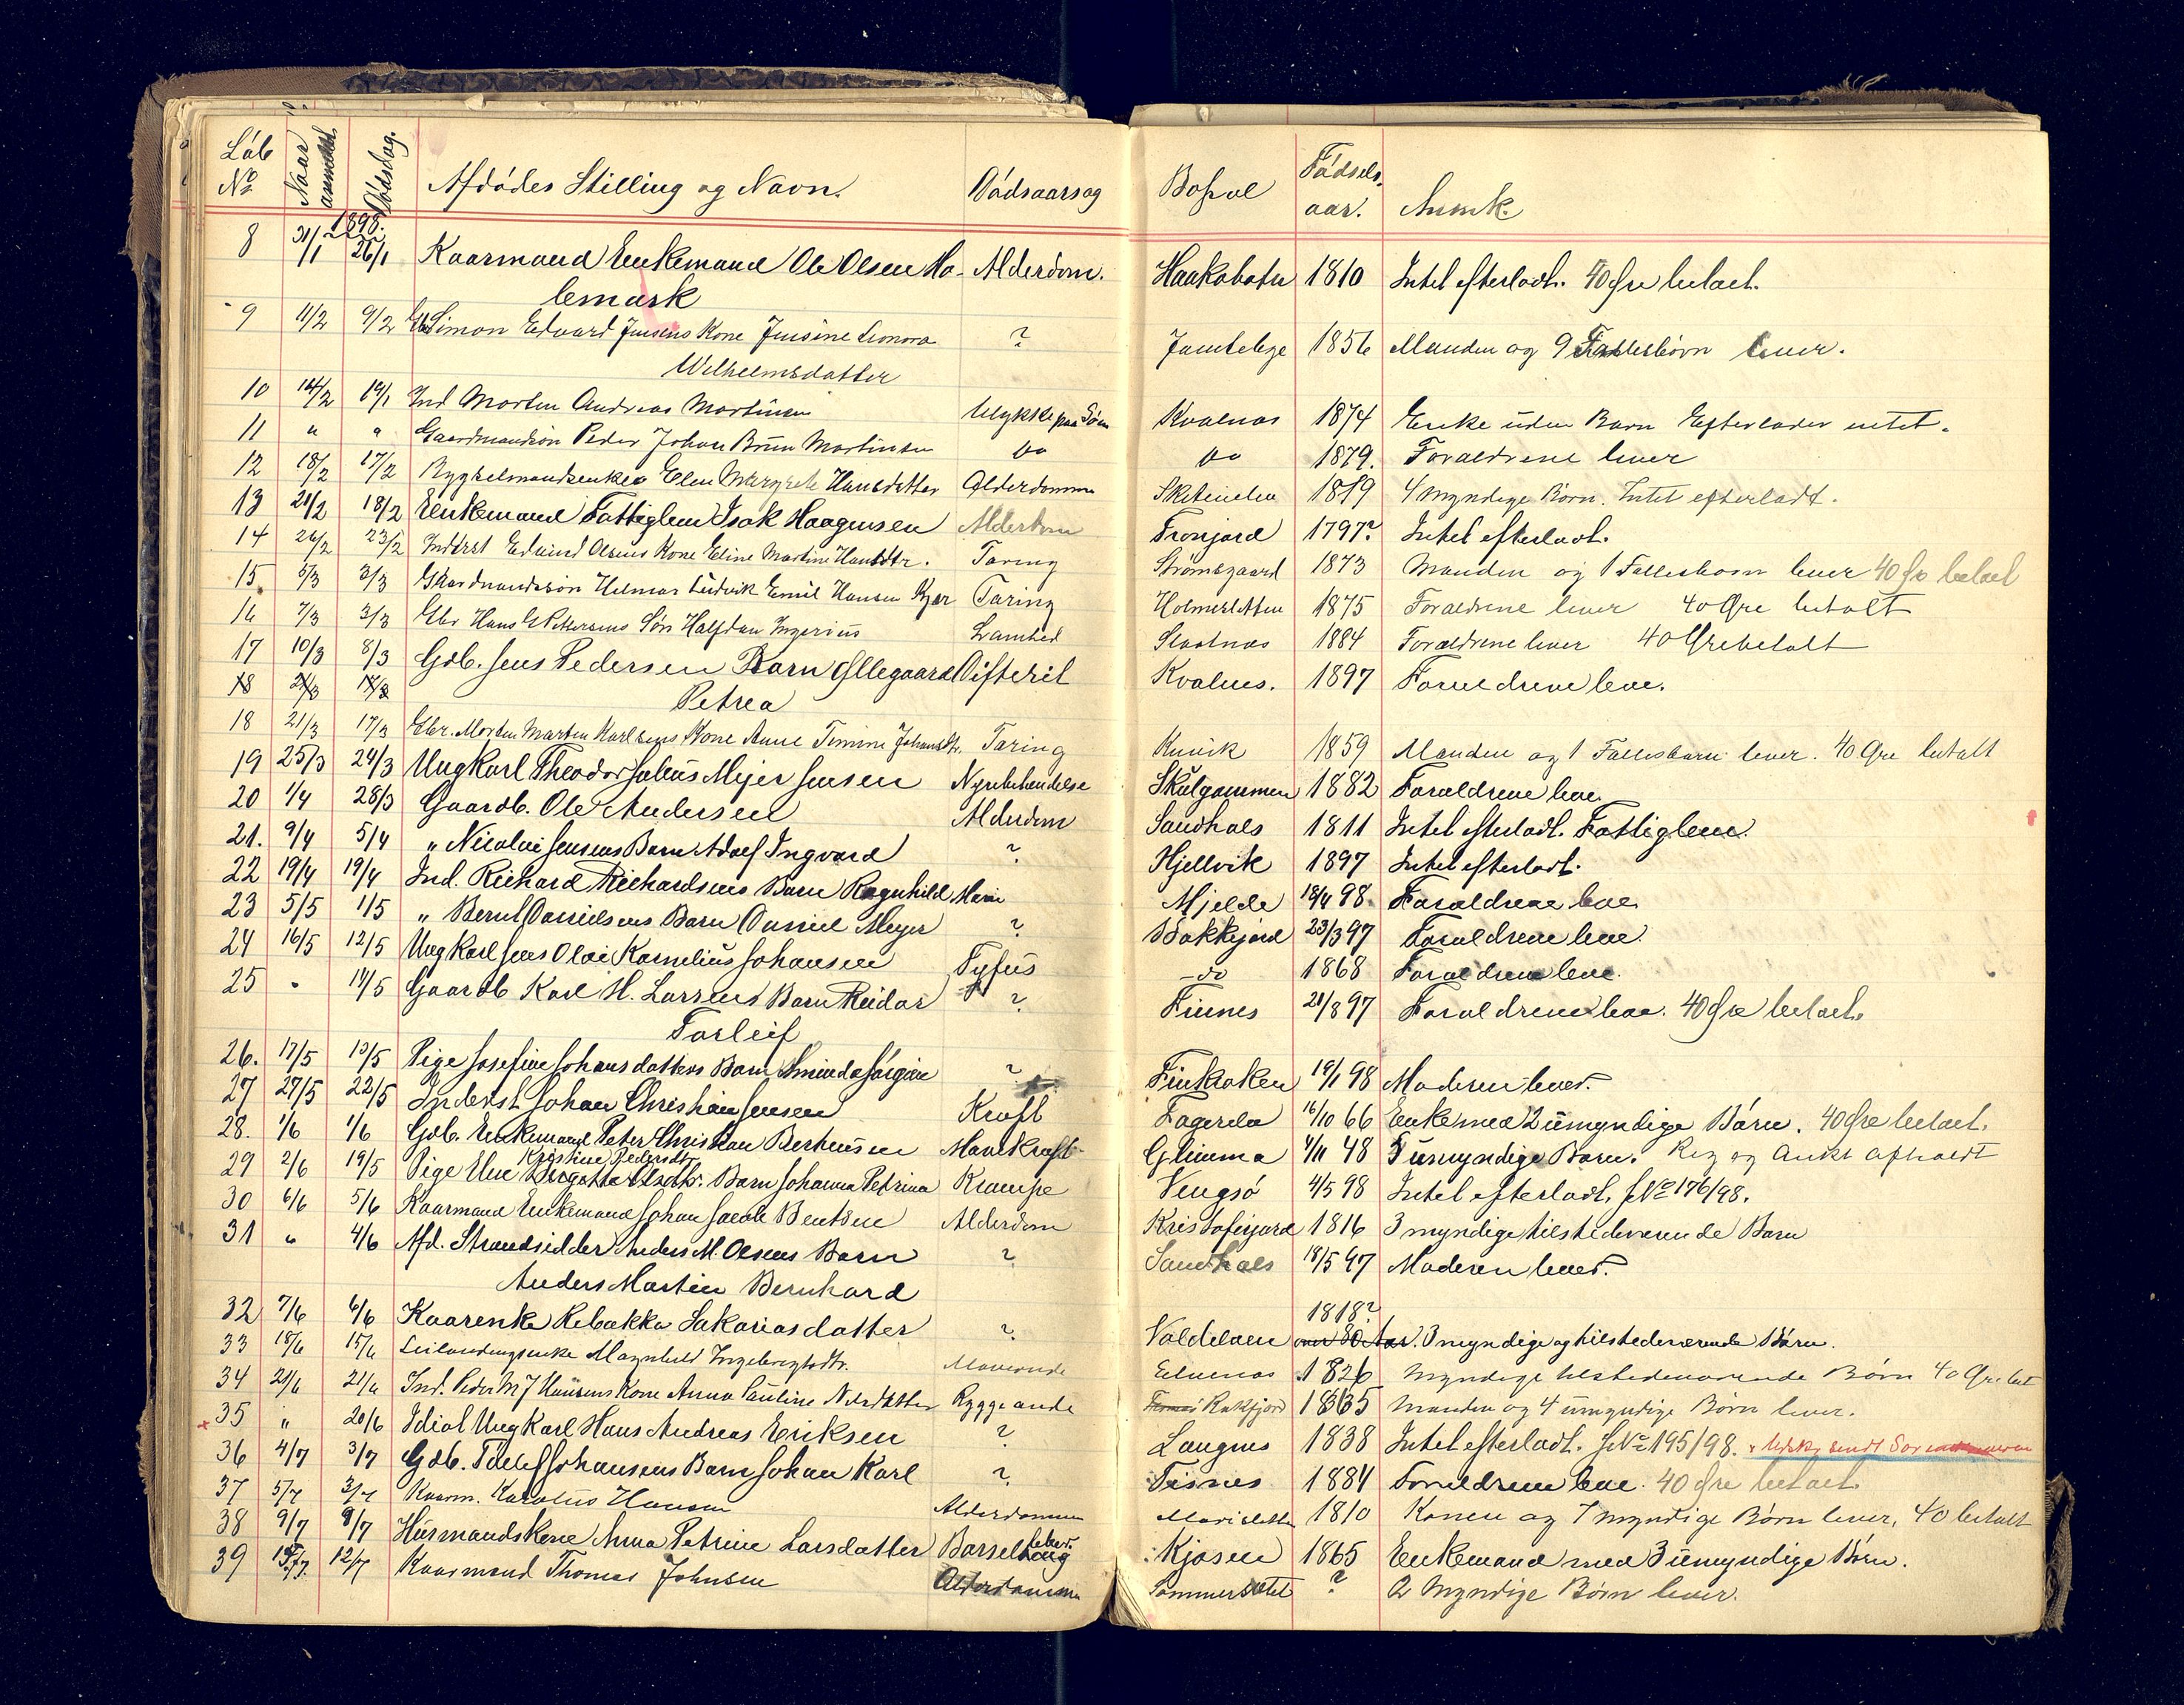 Löb No Naar anmeldt. Dödsdag. Afdödes Stilling og Navn. Dödsaarsag Bopæl Födsels- aar. Anmk.
1898.
8 31/1 26/1 Kaarmand Enkemand Ole Olsen Ho- Alderdom. Haakobotn 1810 Intet efterladt. 40 Øre betalt.
lemark
9 11/2 9/2 Simon Edvard Jensens Kone Jensine Leonora ? 1856 Manden og 9 Fællesbörn lever.
Wilhelmsdatter
10 14/2 19/1 Ind Morten Andreas Martinsen Ulykke paa Søen Kvalnæs 1874 Enke uden Barn Efterlader intet.
11 " " Gaardmandssøn Peder Johan Brun Martinsen do do 1879. Forældrene lever
12 18/2 17/2 Elen Margrete Hansdatter Alderdommen 1819 4 myndige Børn. Intet efterladt.
13 21/2 18/2 Enkemand Fattiglem Isak Haagensen Alderdom 1797? Intet efterladt.
14 26/2 23/2 Inderst Edvind Olsens Kone Eline Martine Hansdtr. Tæring Strømsgaard 1873 Manden og 1 Fællesbarn lever 40 Øre betalt
15. 5/3 3/3 Gaardmandssøn Helmar Ludvik Emil Hansen Kjær Tæring Holmesletten 1875 Forældrene lever 40 Øre betalt
16 7/3 3/3 Gbr Hans G Pettersens Søn Halfdan Ingerius Lamhed Slaatnæs 1884 Forældrene lever 40 Øre betalt
17 10/3 8/3 Gdb. Jens Pedersen Barn Øllegaard Difterit Kvalnes. 1897 Forældrene leve.
18 Petrea
18 21/3 17/3 Gbr. Morten Martin Karlsens Kone Anne Timine Johansdtr. Tæring 1859 Manden og 1 Fællesbarn lever. 40 Øre betalt
19 25/3 24/3 Ungkarl Theodor Julius Mejer Jensen Nyrebetændelse Skulgammen 1882 Forældrene leve.
20 1/4 28/3 Gaardb. Ole Andersen Alderdom Sandhals 1811 Intet efterladt. Fattiglem.
21. 9/4 5/4 " Nicolai Jensens Barn Adolf Ingvard ? Hjellvik 1897 Intet efterladt.
22 19/4 19/4 Ind. Richard Richardsens Barn Ragnhild Marie Mjelde 18/4 98. Forældrene leve
23 5/5 1/5 " Bernt Danielsens Barn Daniel Meyer ? Bakkejord 23/3 97 Forældrene leve.
24 16/5 12/5 Ungkarl Jens Olai Kornelius Johansen Tyfus -do 1868 Forældrene leve.
25 " 14/5 Gaardb Karl H. Larsens Barn Reidar ? Finnes 21/8 97 Forældrene leve. 40 Øre betalt.
Torleif
26. 17/5 13/5 Pige Josefine Johansdatters Barn Sminda Jörgine ? Finkroken 19/1 98 Moderen lever.
27 27/5 22/5 Inderst Johan Christian Jensen Kræft Fagerela 16/10 66 Enke med 2 umyndige Börn. 40 Øre betalt.
28. 1/6 1/6 Gdb. Enkemand Peter Christian Berteusen Mavekræft Glimma 4/11 48 5 umyndige Børn. Reg og Aukt afholdt
Kristine Pedersdtr
29 2/6 19/5 Pige Elen Birgitte Olsdtr. Barn Johanna Petrina Krampe Vengsö 4/5 98 Intet efterladt. JNo 176/98.
30 6/6 5/6 Kaarmand Enkemand Johan Jacob Bentsen Alderdom Kristoferjord 1816 3 myndige tilstedeværende Barn
31 " 4/6 Afd. Strandsidder Anders M. Olsens Barn ? Sandhals 18/5 97 Moderen lever.
Anders Martin Bernhard
32 7/6 6/6 Kaarenke Rebakka Sakariasdatter ? 1818?
Voldelven over 80 Aar. 3 myndige og tilstedeværende Börn.
33 18/6 15/6 Leilændingsenke Magnhild Ingebrigtsdtr. Mavende 1826 Myndige tilstedeværende Børn 40 Øre bet
34 21/6 21/6 Ind. Peder M J Hansens Kone Anna Pauline Nilsdatter Ryggeande Rakfjord 1865 Manden og 4 umyndige Børn lever.
x 35 " 20/6 Idiot Ungkarl Hans Andreas Eriksen ? Langnes 1838 Intet efterladt. JNo 195/98.
36 4/7 3/7 Gdb. Tollef Johansens Barn Johan Karl ? Tisnes 1884 Forældrene leve. 40 Øre betalt
37 5/7 3/7 Kaarm. Karolus Hansen Alderdommen 1810 Konen og 7 myndige Børn lever, 40 betalt
38 9/7 8/7 Husmandskone Anna Petrine Larsdatter Barselseng feber. Kjosen 1865 Enkemand med 3 umyndige Börn.
39 15/7 12/7 Kaarmand Thomas Johnsen Alderdommen Sommersætet ? 2 Myndige Børn lever.